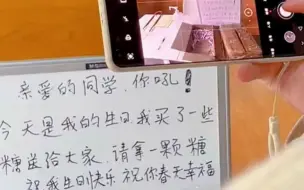 亲爱的同学，你吼！
今天是我的生日，我买了一些
糖送给大家，请拿一颗糖
祝我生日快乐 祝你春天幸福